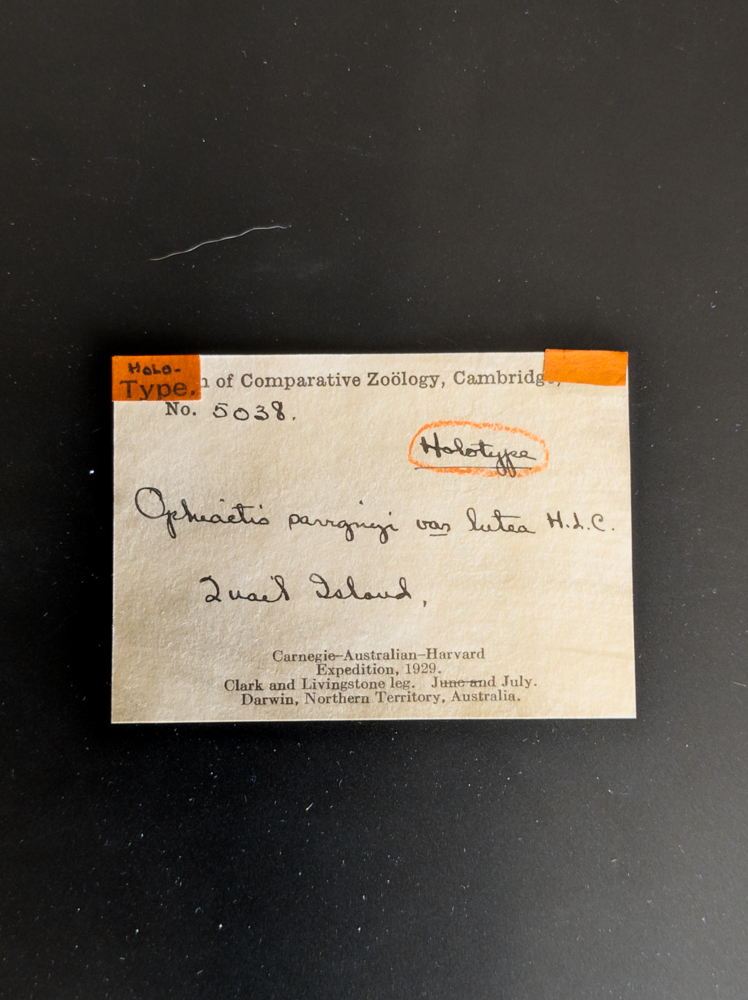 HOLO-
Type.
n of Comparative Zoölogy, Cambridge,
No. 5038.
Holotype
Ophiactis var lutea H.L.C.
Quail Island,
Carnegie–Australian–Harvard
Expedition, 1929.
Clark and Livingstone leg. June and July.
Darwin, Northern Territory, Australia.